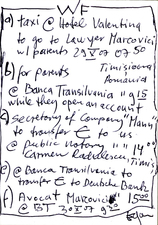 WF
a) taxi @ Hotel Valentina
to go to Lawyer Marcovici
w/ parents 29 V 07 0750
b) for parents Timisioara
Romania
@ Banca Transilvania " 915
while they open an account
c) Secretory of Company
to transfer € to us
@ public notory " " 14°°
Carmen Timis
e) @ Banca Transilvania to
transfer € to Deutche Bank
f) Avocat Marcovici 15°°
@ BT 30 V 07 9